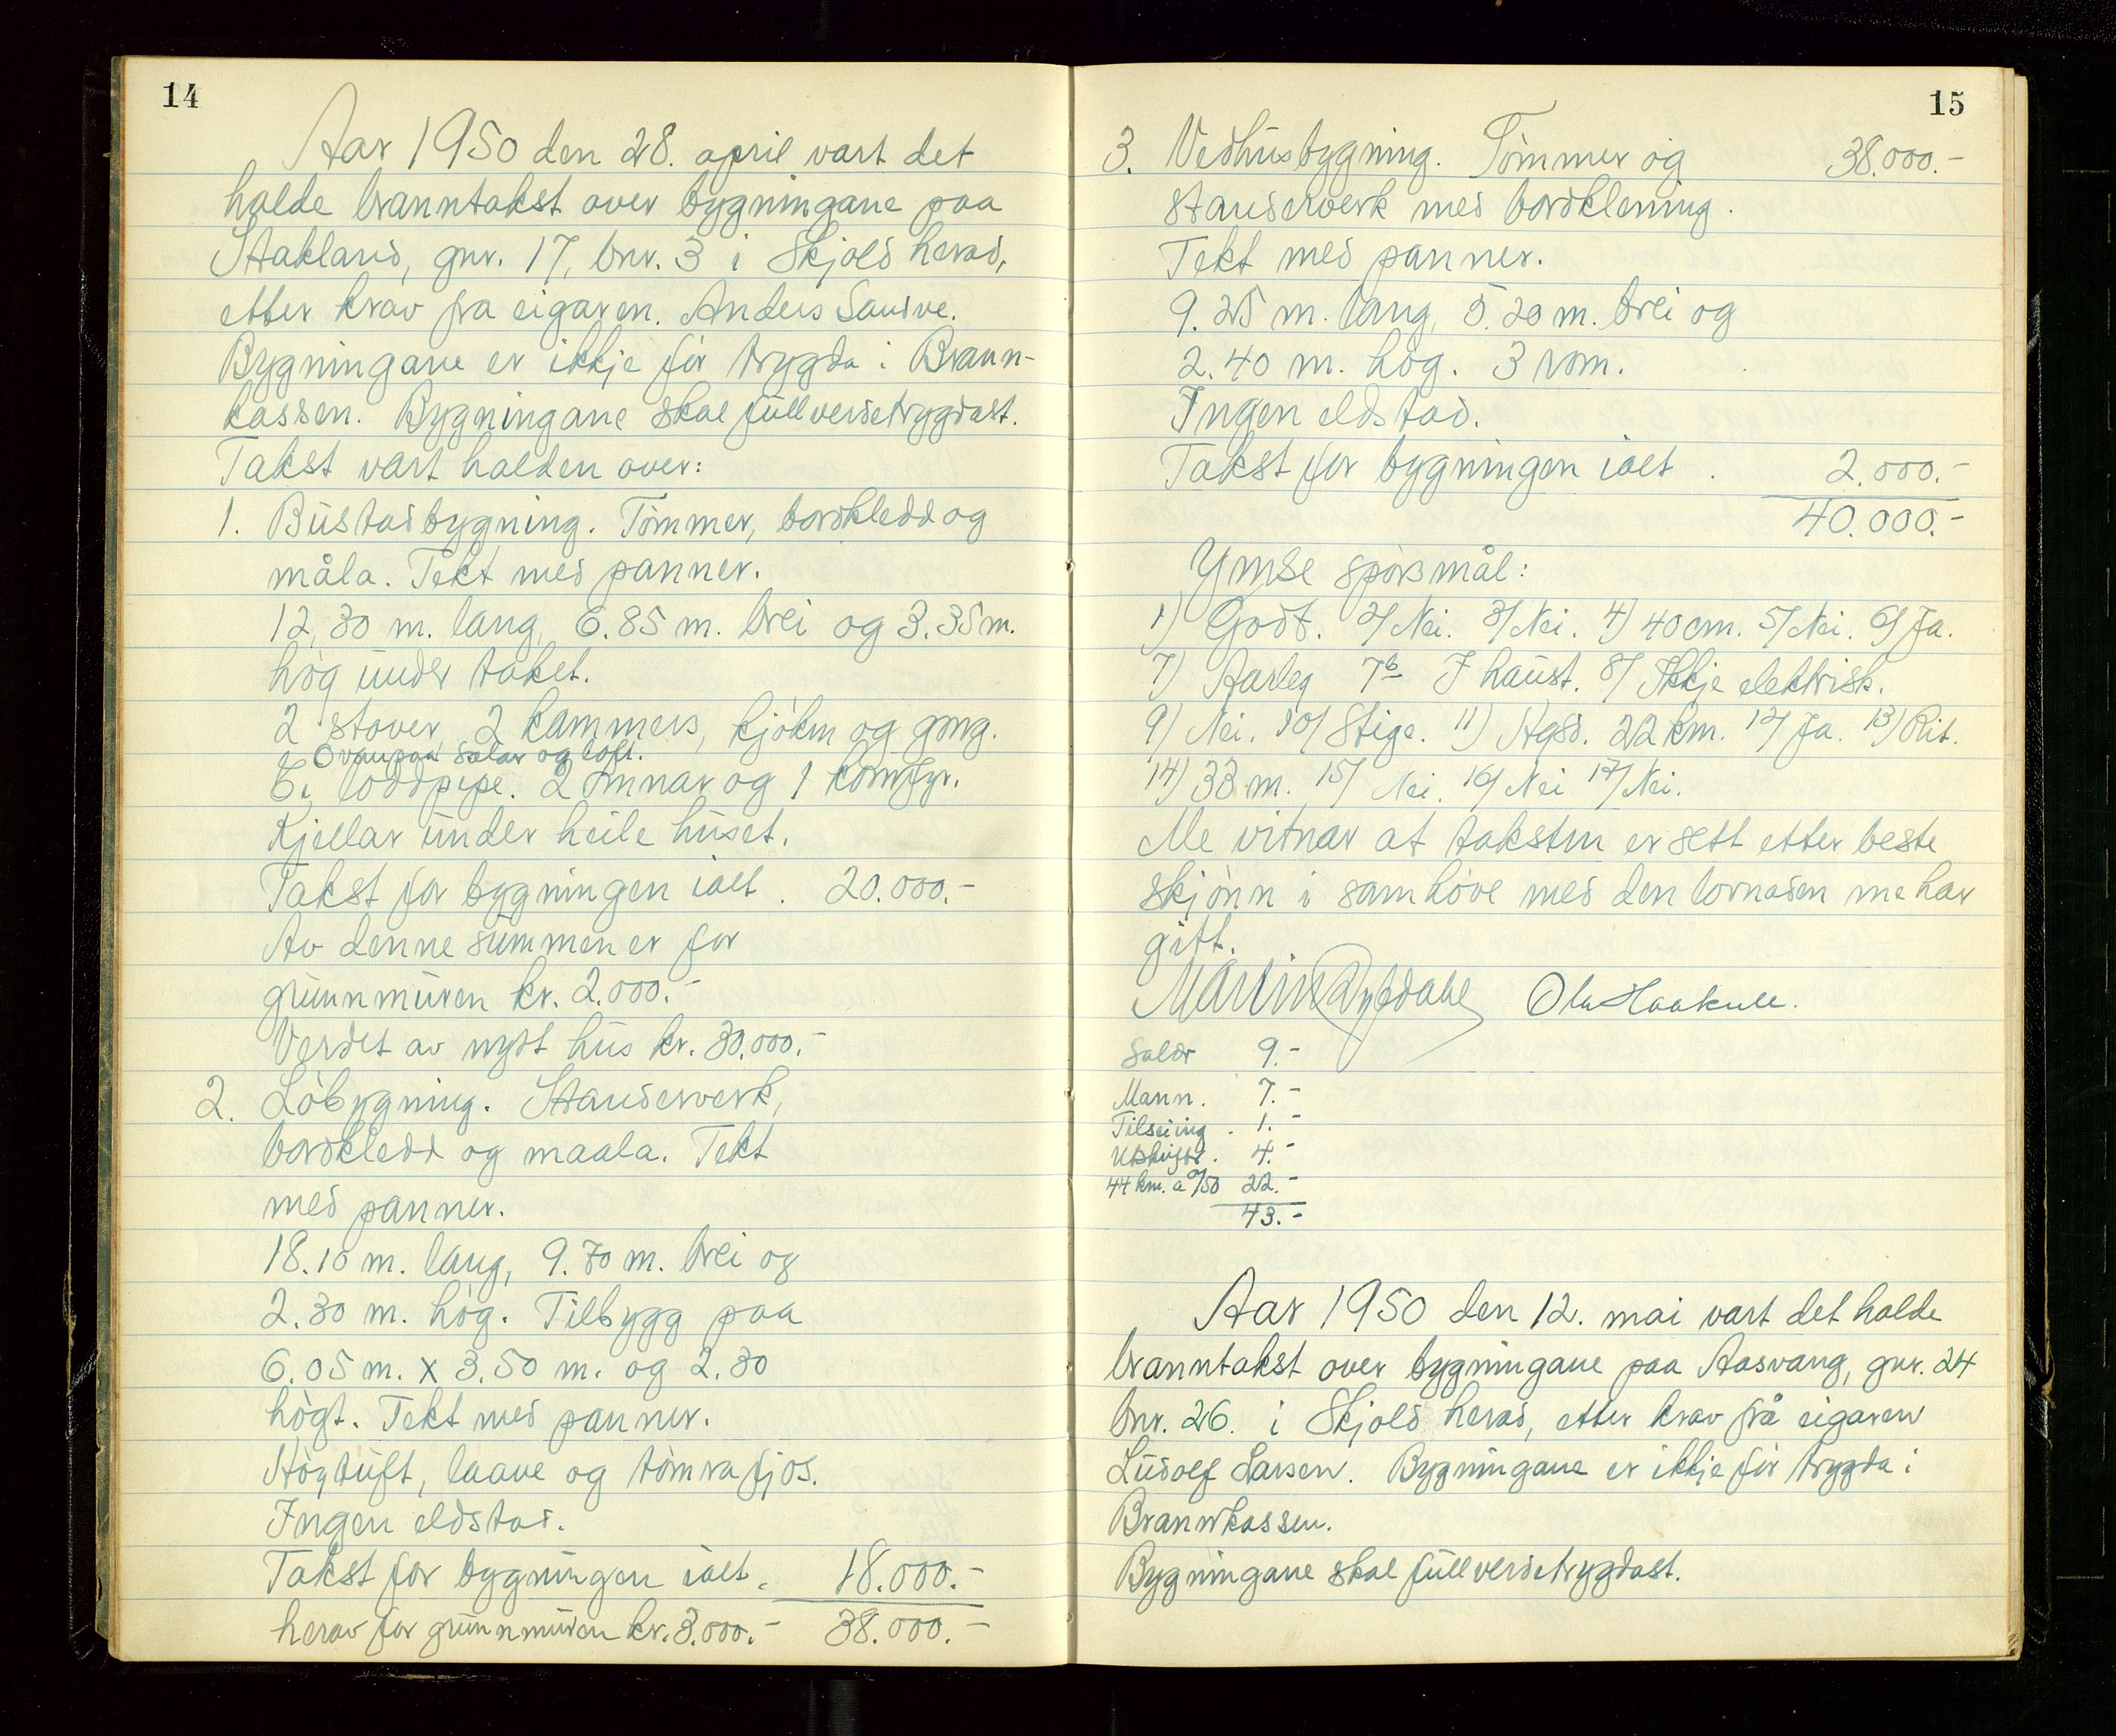 14
Aar 1950 den 28. april vart det
halde branntakst over bygningane paa
Stakland, gnr. 17, bnr. 3 i Skjold herad,
etter krav fra eigaren. Anders Sandve.
Bygningane er ikkje før trygda i Brann-
kassen. Bygningane skal fullverdetrygdast.
Takst vart halden over:
1. Bustadbygning. Tømmer, bordkledd og
måla. Tekt med panner.
12,30 m. lang, 6.85 m. brei og 3.35 m.
høg under taket.
2 stover, 2 kammers, kjøken og gong.
Ovanpaa salar og loft.
Ei loddpipe. 2 omnar og 1 komfyr.
Kjellar under heile huset.
Takst for bygningen ialt . 20.000.-
Av denne summen er for
grunnmuren kr. 2.000.-
Verdet av nytt hus kr. 30.000.-
2. Løbygning. Standerverk,
bordkledd og maala. Tekt
med panner.
18.10 m. lang, 9.70 m. brei og
2.30 m. høg. Tilbygg paa
6.05 m. x 3.50 m. og 2.30
høgt. Tekt med panner.
Høgtuft, laave og tømra fjos.
Ingen eldstad.
Takst for bygningen ialt. 18.000.-
herav for grunnmuren kr. 3.000.- 38.000.-
15
3. Vedhusbygning. Tømmer og 38.000.-
standerverk med bordklening.
Tekt med panner.
9.25 m. lang, 5.20 m. brei og
2.40 m. høg. 3 rom.
Ingen eldstad.
Takst for bygningen ialt . 2.000.-
40.000.-
Ymse spørsmål:
1) Godt. 2/ Nei. 3/ Nei. 4) 40 cm. 5/ Nei. 6/ Ja.
7) Aarleg 7b I haust. 8/ Ikkje elektrisk.
9) Nei. 10/ Stige. 11) Hgsd. 22 km. 12/ Ja. 13) Rit.
14) 33 m. 15/ Nei. 16/ Nei 17/ Nei.
Me vitnar at taksten er sett etter beste
skjønn i samhøve med den lovnaden me har
gitt.
Martin Ola Haakull.
Salær 9.-
Mann. 7.-
Tilseiing . 1.-
Utskrift . 4.-
44 km. a 0/50 22.-
43.-
Aar 1950 den 12. mai vart det halde
branntakst over bygningane paa Aasvang, gnr. 24
bnr. 26. i Skjold herad, etter krav frå eigaren
Ludolf Larsen. Bygningane er ikkje før trygda i
Brannkassen.
Bygningane skal fullverdetrygdast.